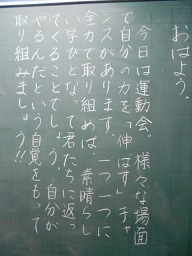 おはよう。
今日は運動会。様々な場面
で自分の力を「伸ばす」チャ
ンスがあります。一つ一つに
全力で取り組めば、素晴らし
い学びとなって君たちに返っ
てくることでしょう。自分が
やるんだという自覚をもって
取り組みましょう!!